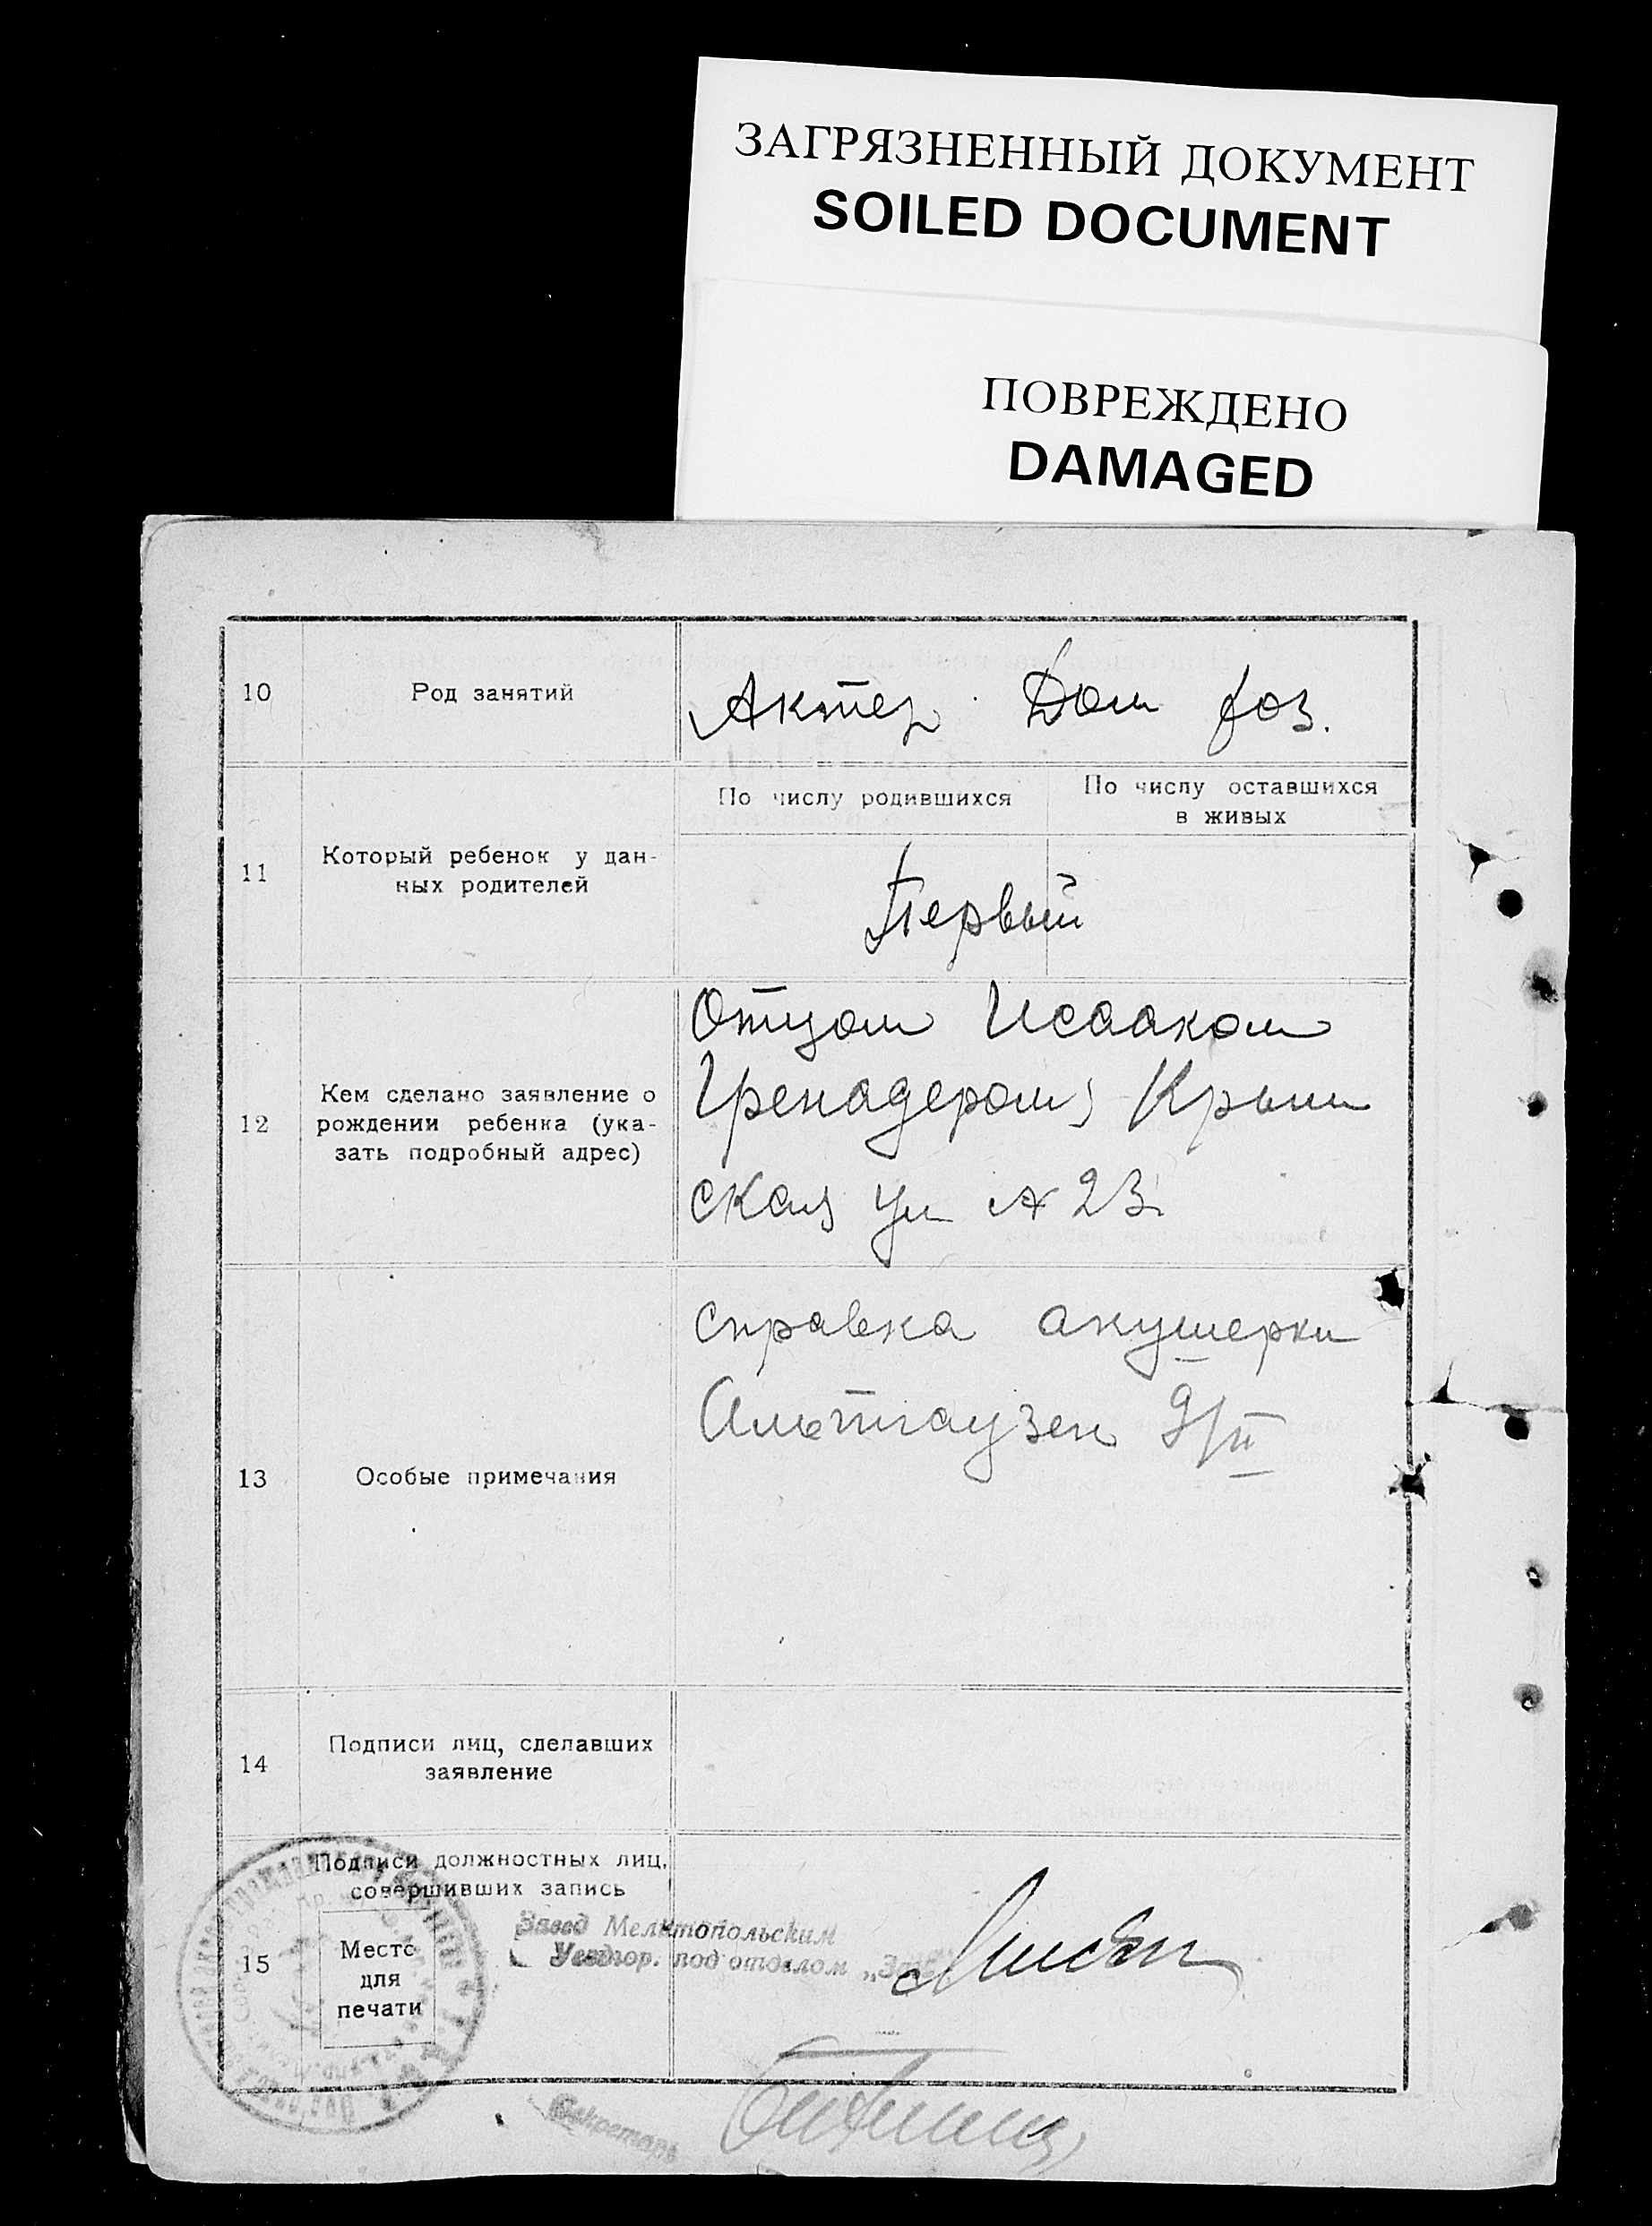 ЗАГРЯЗНЕННЫЙ ДОКУМЕНТ
SOILED DOCUMENT
ПОВРЕЖДЕНО
DAMAGED
10 Род занятий Актер. Дом хоз.
11 Который ребенок у дан-
ных родителей
По числу родившихся
По числу оставшихся
в живых
Первый
12 Кем сделано заявление о
рождении ребенка (ука-
зать подробный адрес)
Отцом Исааком
Гренадером, Крым
ская ул № 23
13 Особые примечания
Справка акушерки
Альтгаузен 9/II
14 Подписи лиц, сделавших
заявление
15 Подписи должностных лиц,
совершивших запись
Место
для
печати
Завед Мелитопольским
Уездгор. под отделом „Загс
Секретарь